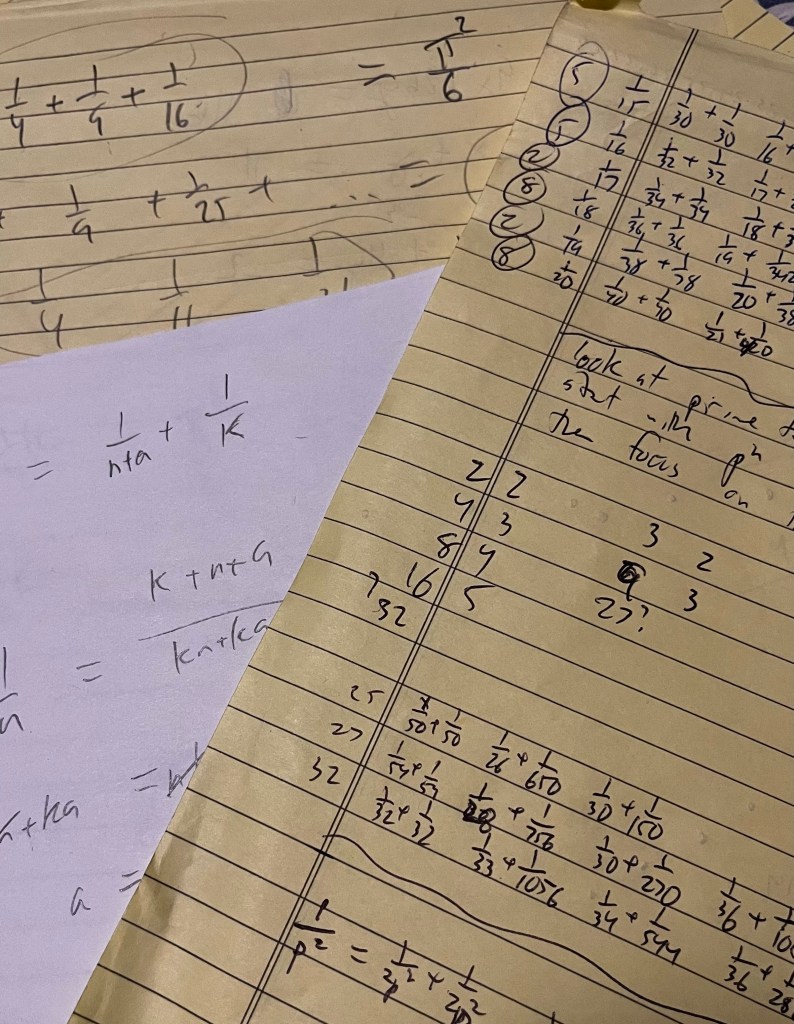 1/4 + 1/9 + 1/16 = π²/6
1/9 + 1/25 + ... =
1/4 1/11
= 1/n+a + 1/K
K + n + a
= kn+ka
+ka =
a =
5 1/15 1/30 + 1/30 1/16 +
5 1/16 1/32 + 1/32 1/17 +
2 1/17 1/34 + 1/34 1/18 +
8 1/18 1/36 + 1/36 1/19 + 1/342
2 1/19 1/38 + 1/38 1/20 + 1/38
8 1/20 1/40 + 1/40 1/21 + 1/420
look at prime
start with pⁿ
then focus on
2 2
4 3 3 2
8 4 9 3
16 5 27?
? 32
25 1/50 + 1/50 1/26 + 1/650 1/30 + 1/150
27 1/54 + 1/54 + 1/756 1/30 + 1/270 1/36 + 1/10
32 1/32 + 1/32 1/33 + 1/1056 1/34 + 1/544 1/36 + 1/28
1/p² = 1/2p² + 1/2p²